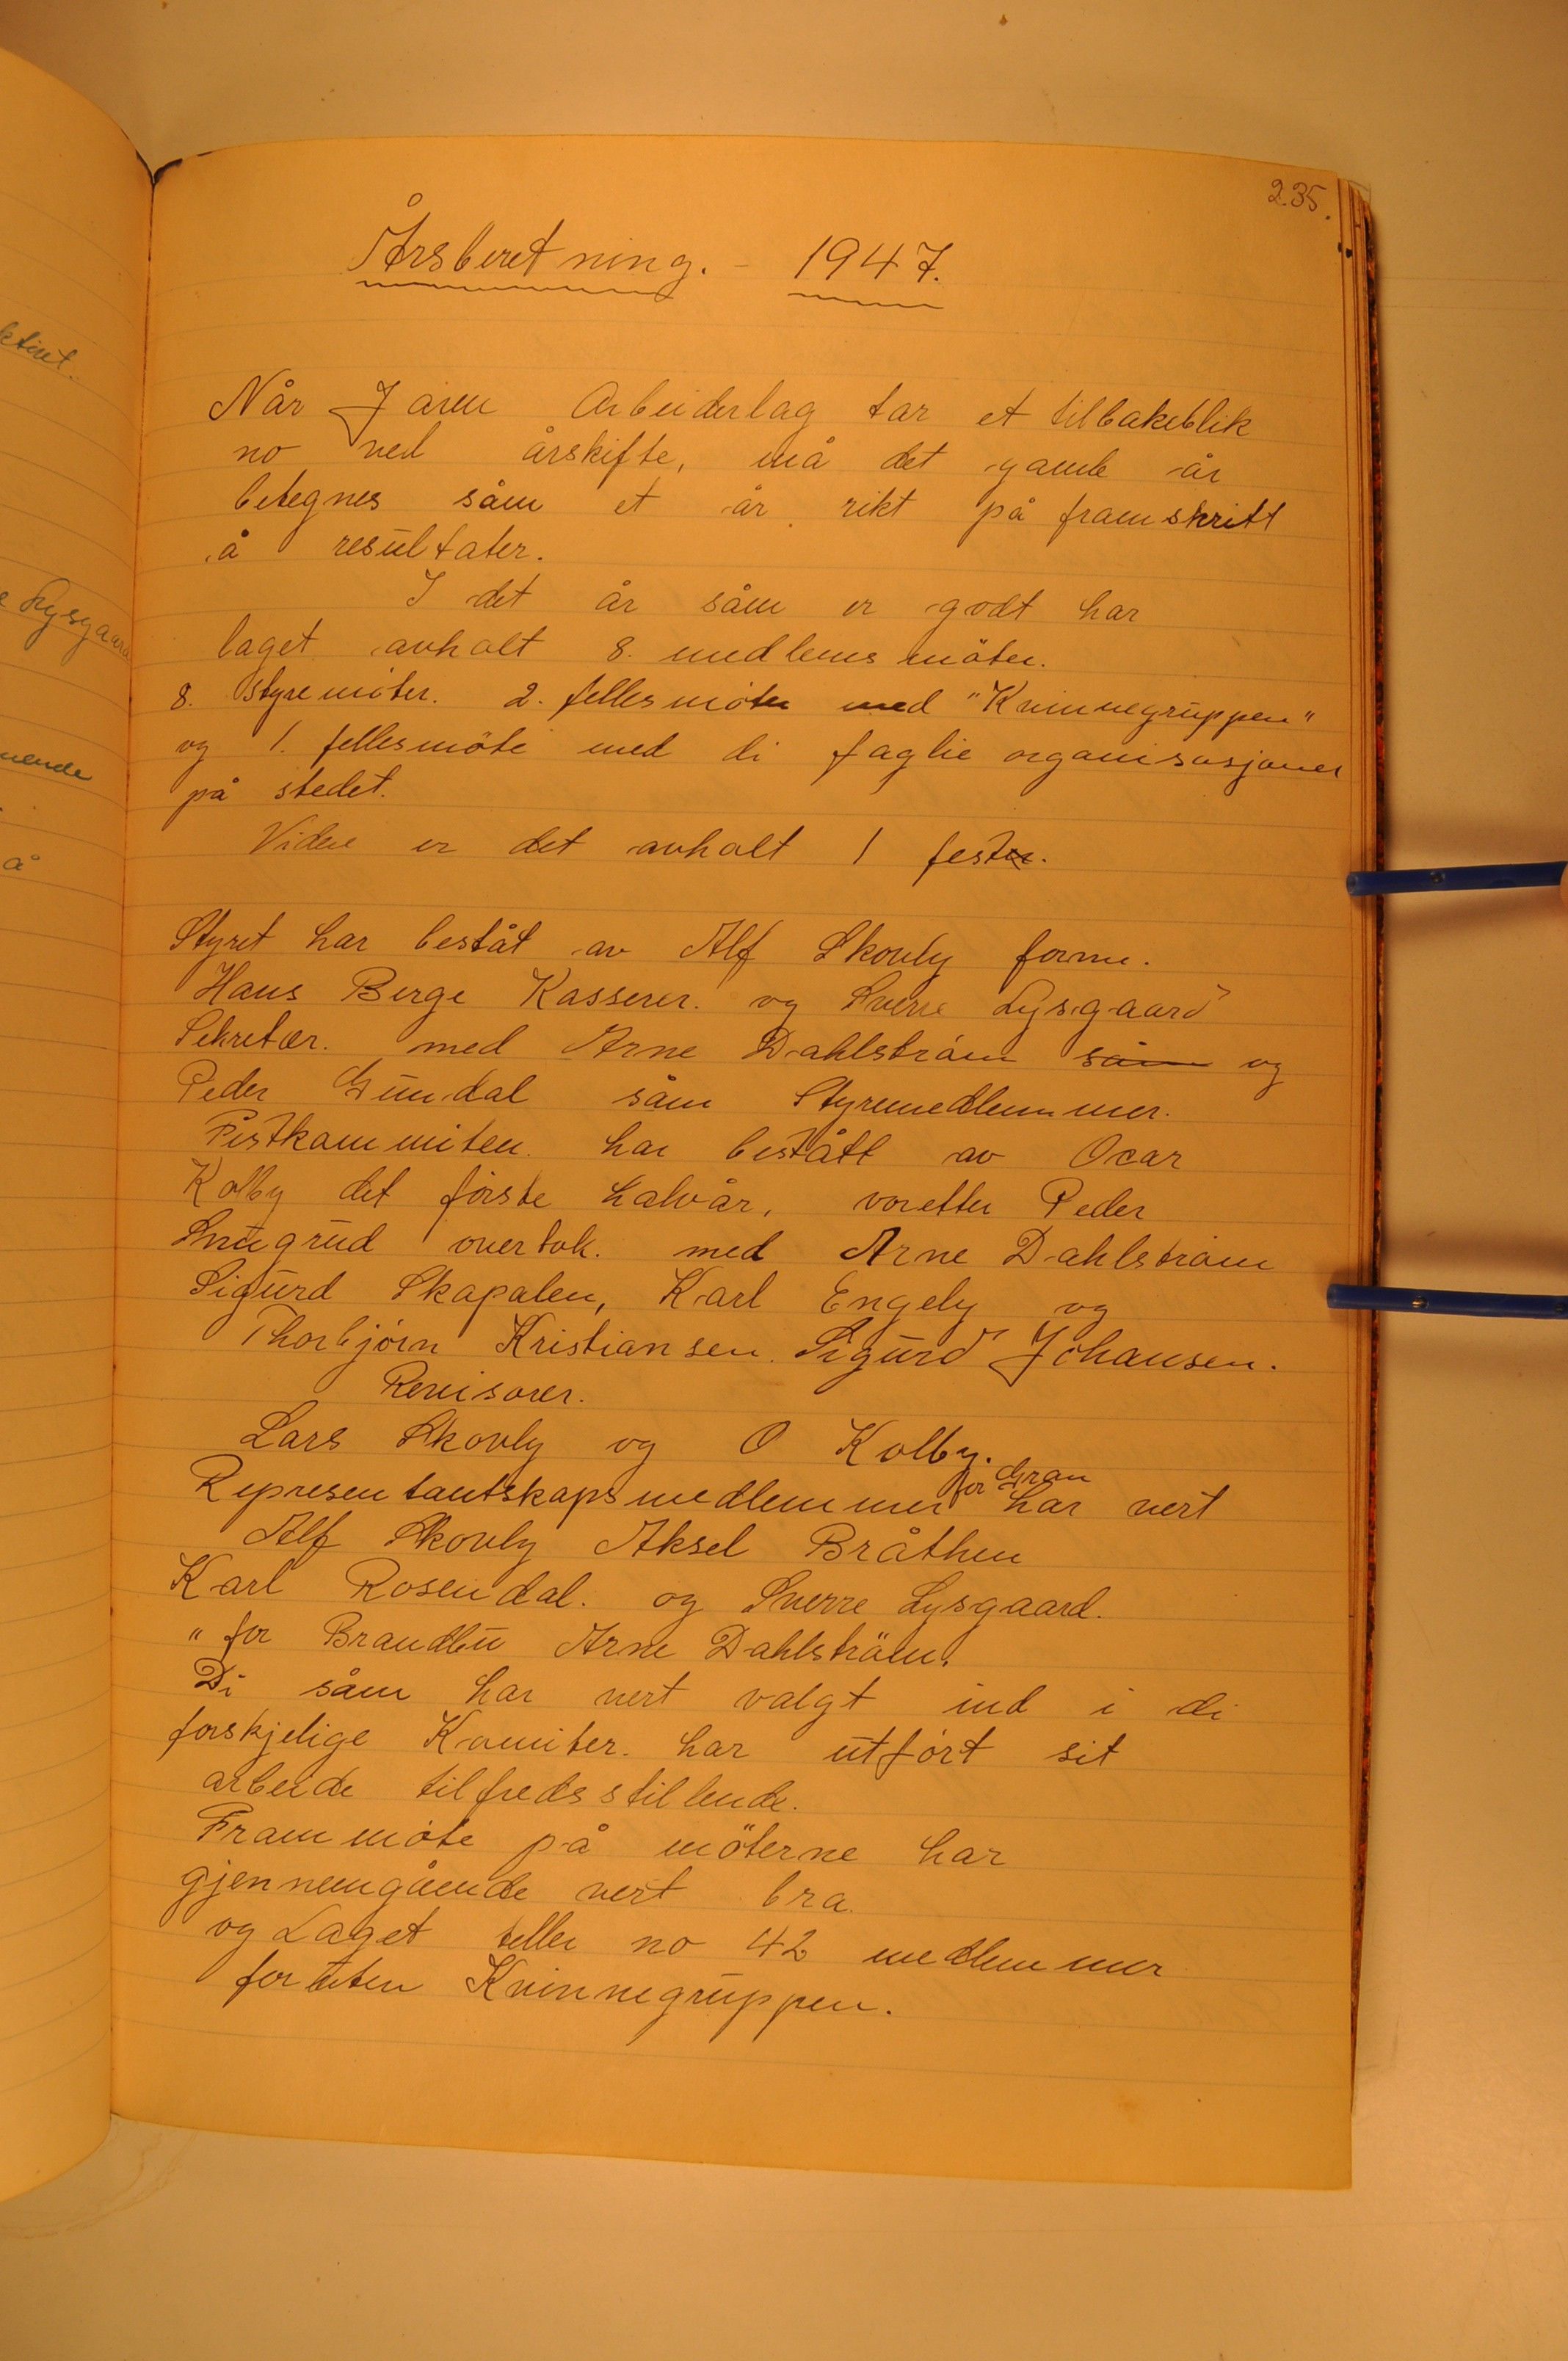 235.
Årsberetning. - 1947.
Når Jaren Arbeiderlag tar et tilbakeblik
no ved årskifte, må det gamle år
betegnes såm et år rikt på framskritt
å resultater.
I det år såm er godt har
laget avholt 8. medlems möter.
8. styremöter. 2. fellesmöter med "Kvinnegruppen"
og 1. fellesmöte med di faglie organisasjoner
på stedet.
Videre er det avholt 1 fest.
Styret har beståt av Alf Skovly form.
Hans Berge Kasserer. og Sverre Lysgaard
Sekretær. med Arne Dahlstråm såm og
Peder Gundal såm Styremedlemmer.
Festkammiteen. har bestått av Ocar
Kolby det förste halvår, voretter Peder
overtok. med Arne Dahlström
Sigurd Skapalen, Karl Engely og
Thorbjörn Kristiansen. Sigurd Johansen.
Revisorer.
Lars Skovly og O Kolby.
Representantskapsmedlemmer for Gran har vert
Alf Skovly Aksel Bråthen
Karl Rosendal. og Sverre Lysgaard.
" for Brandbu Arne Dahlsträm.
Di såm har vert valgt ind i di
forskjelige Komiter. har utfört sit
arbeide tilfredsstillende.
Frammöte på möterne har
gjennemgående vert bra.
og Laget teller no 42 medlemmer
foruten Kvinnegruppen.
ktivt.
Lysgaard
å